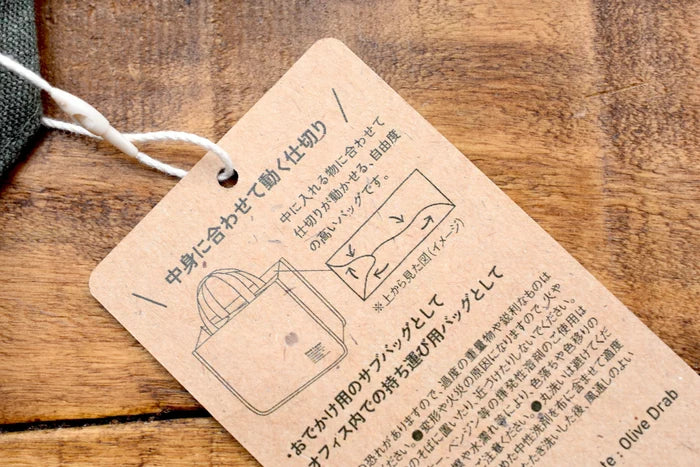 中身に合わせて動く仕切り
中に入れる物に合わせて
仕切りが動かせる、自由度
の高いバッグです。
※上から見た図(イメージ)
・おでかけ用のサブバッグとして
オフィス内での持ち運び用バッグとして
の恐れがありますので、過度の重量物や鋭利なものは
ださい。●変形や火災の原因になりますので、火や
のそばに置いたり、近づけたりしないでください。
ー、ベンジン等の揮発性溶剤のご使用は
擦や水濡れ等により、色落ちや色移りの
ご注意ください。●丸洗いは避けてくだ
めた中性洗剤を布に含ませて適度
たき洗いした後、風通しのよい
le : Olive Drab